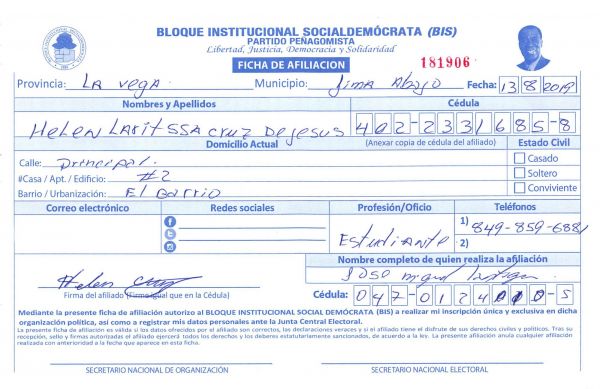 BLOQUE INSTITUCIONAL SOCIALDEMÓCRATA (BIS)
PARTIDO PEÑAGOMISTA
Libertad, Justicia, Democracia y Solidaridad
FICHA DE AFILIACION 181906
Provincia: La Vega Municipio: Jima Abajo Fecha: 13/8/2019
Nombres y Apellidos Cédula
Helen Laritssa Cruz De Jesus 402-2331685-8
Domicilio Actual (Anexar copia de cédula del afiliado) Estado Civil
Calle: Principal. Casado
#Casa / Apt. / Edificio: #2 Soltero
Barrio / Urbanización: El Barrio Conviviente
Correo electrónico Redes sociales Profesión/Oficio Teléfonos
1) 849-859-6881
Estudiante 2)
Nombre completo de quien realiza la afiliación
Helen Cruz Jose Miguel
Firma del afiliado (Firma igual que en la Cédula) Cédula: 047-0124 -5
Mediante la presente ficha de afiliación autorizo al BLOQUE INSTITUCIONAL SOCIAL DEMÓCRATA (BIS) a realizar mi inscripción única y exclusiva en dicha
organización política, así como a registrar mis datos personales ante la Junta Central Electoral.
La presente ficha de afiliación es válida si los datos ofrecidos por el afiliado son correctos, las declaraciones veraces y si el afiliado tiene el disfrute de sus derechos civiles y políticos. Tras su
recepción, sello y firmas autorizadas el afiliado ejercerá todos los derechos y los deberes estatutariamente sancionados, de acuerdo a la ley. La presente afiliación anula cualquier afiliación
realizada con anterioridad a la fecha que aparece en esta ficha.
SECRETARIO NACIONAL DE ORGANIZACIÓN SECRETARIO NACIONAL ELECTORAL